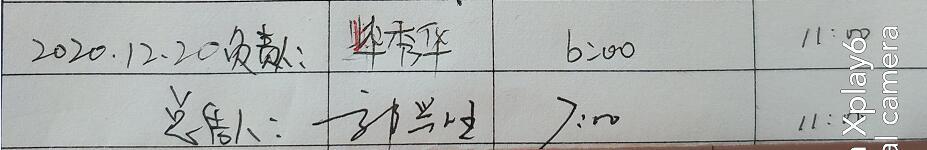 2020.12.20负责人: 毕秀华 6:00
总负人: 郭兴旺 7:00
Xplay6
al camera